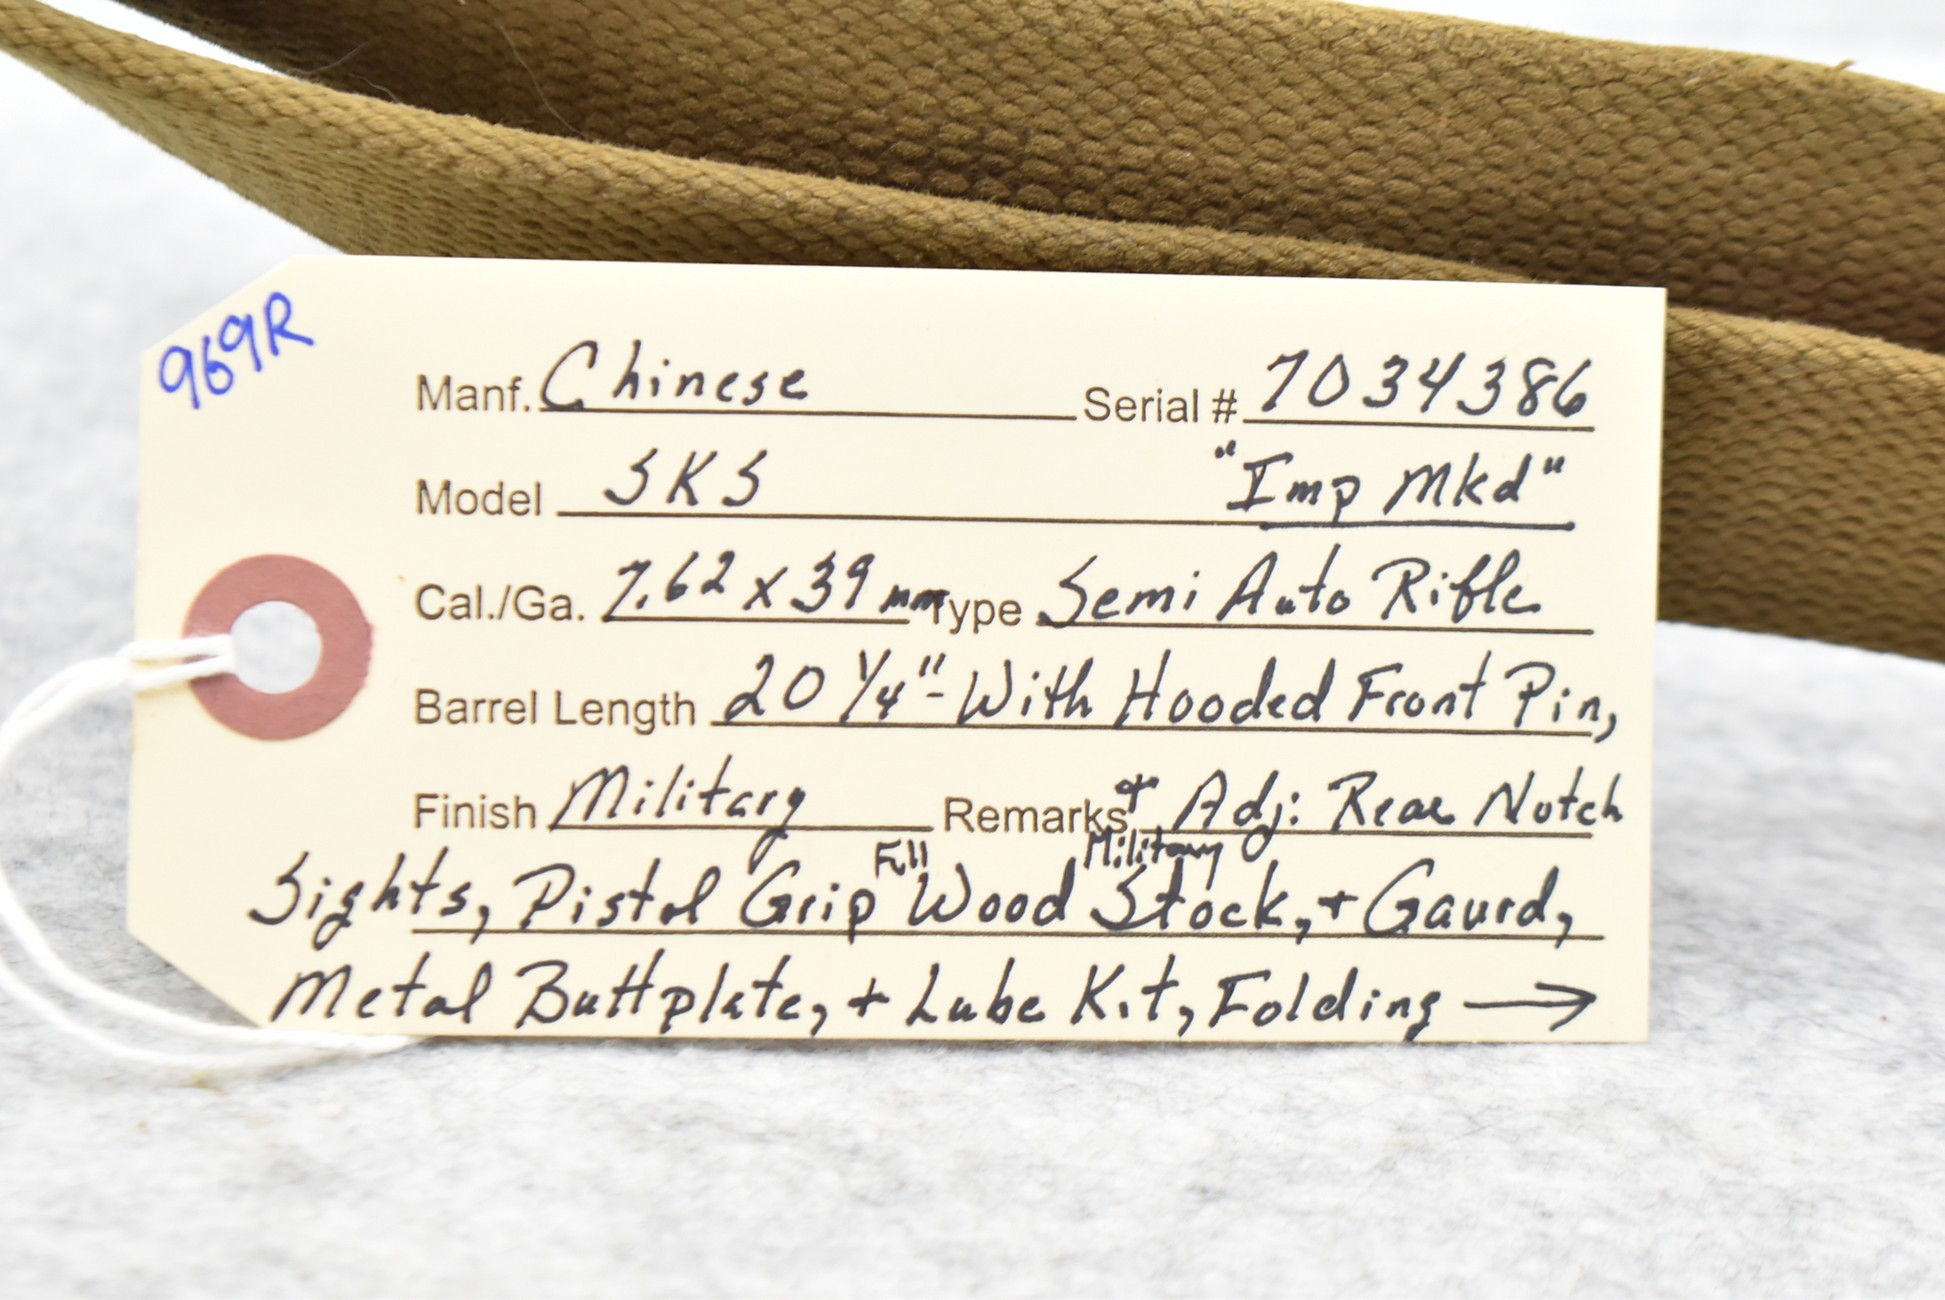 969R
Manf. Chinese Serial # 7034386
Model SKS "Imp Mkd"
Cal./Ga. 7.62 x 39 mm Type Semi Auto Rifle
Barrel Length 20 1/4" - With Hooded Front Pin,
Finish Military Remarks + Adj: Rear Notch
Sights, Pistol Grip Full Wood Military Stock, + Gaurd,
Metal Buttplate, + Lube Kit, Folding →